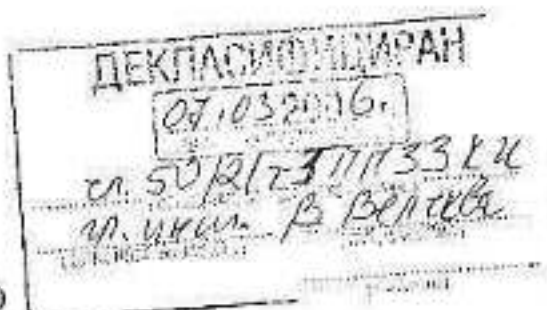 ДЕКЛАСИФИЦИРАН
07.03.2016.
чл. 50/2/т3 ППЗЗКИ
гл. инсп. В Велчева